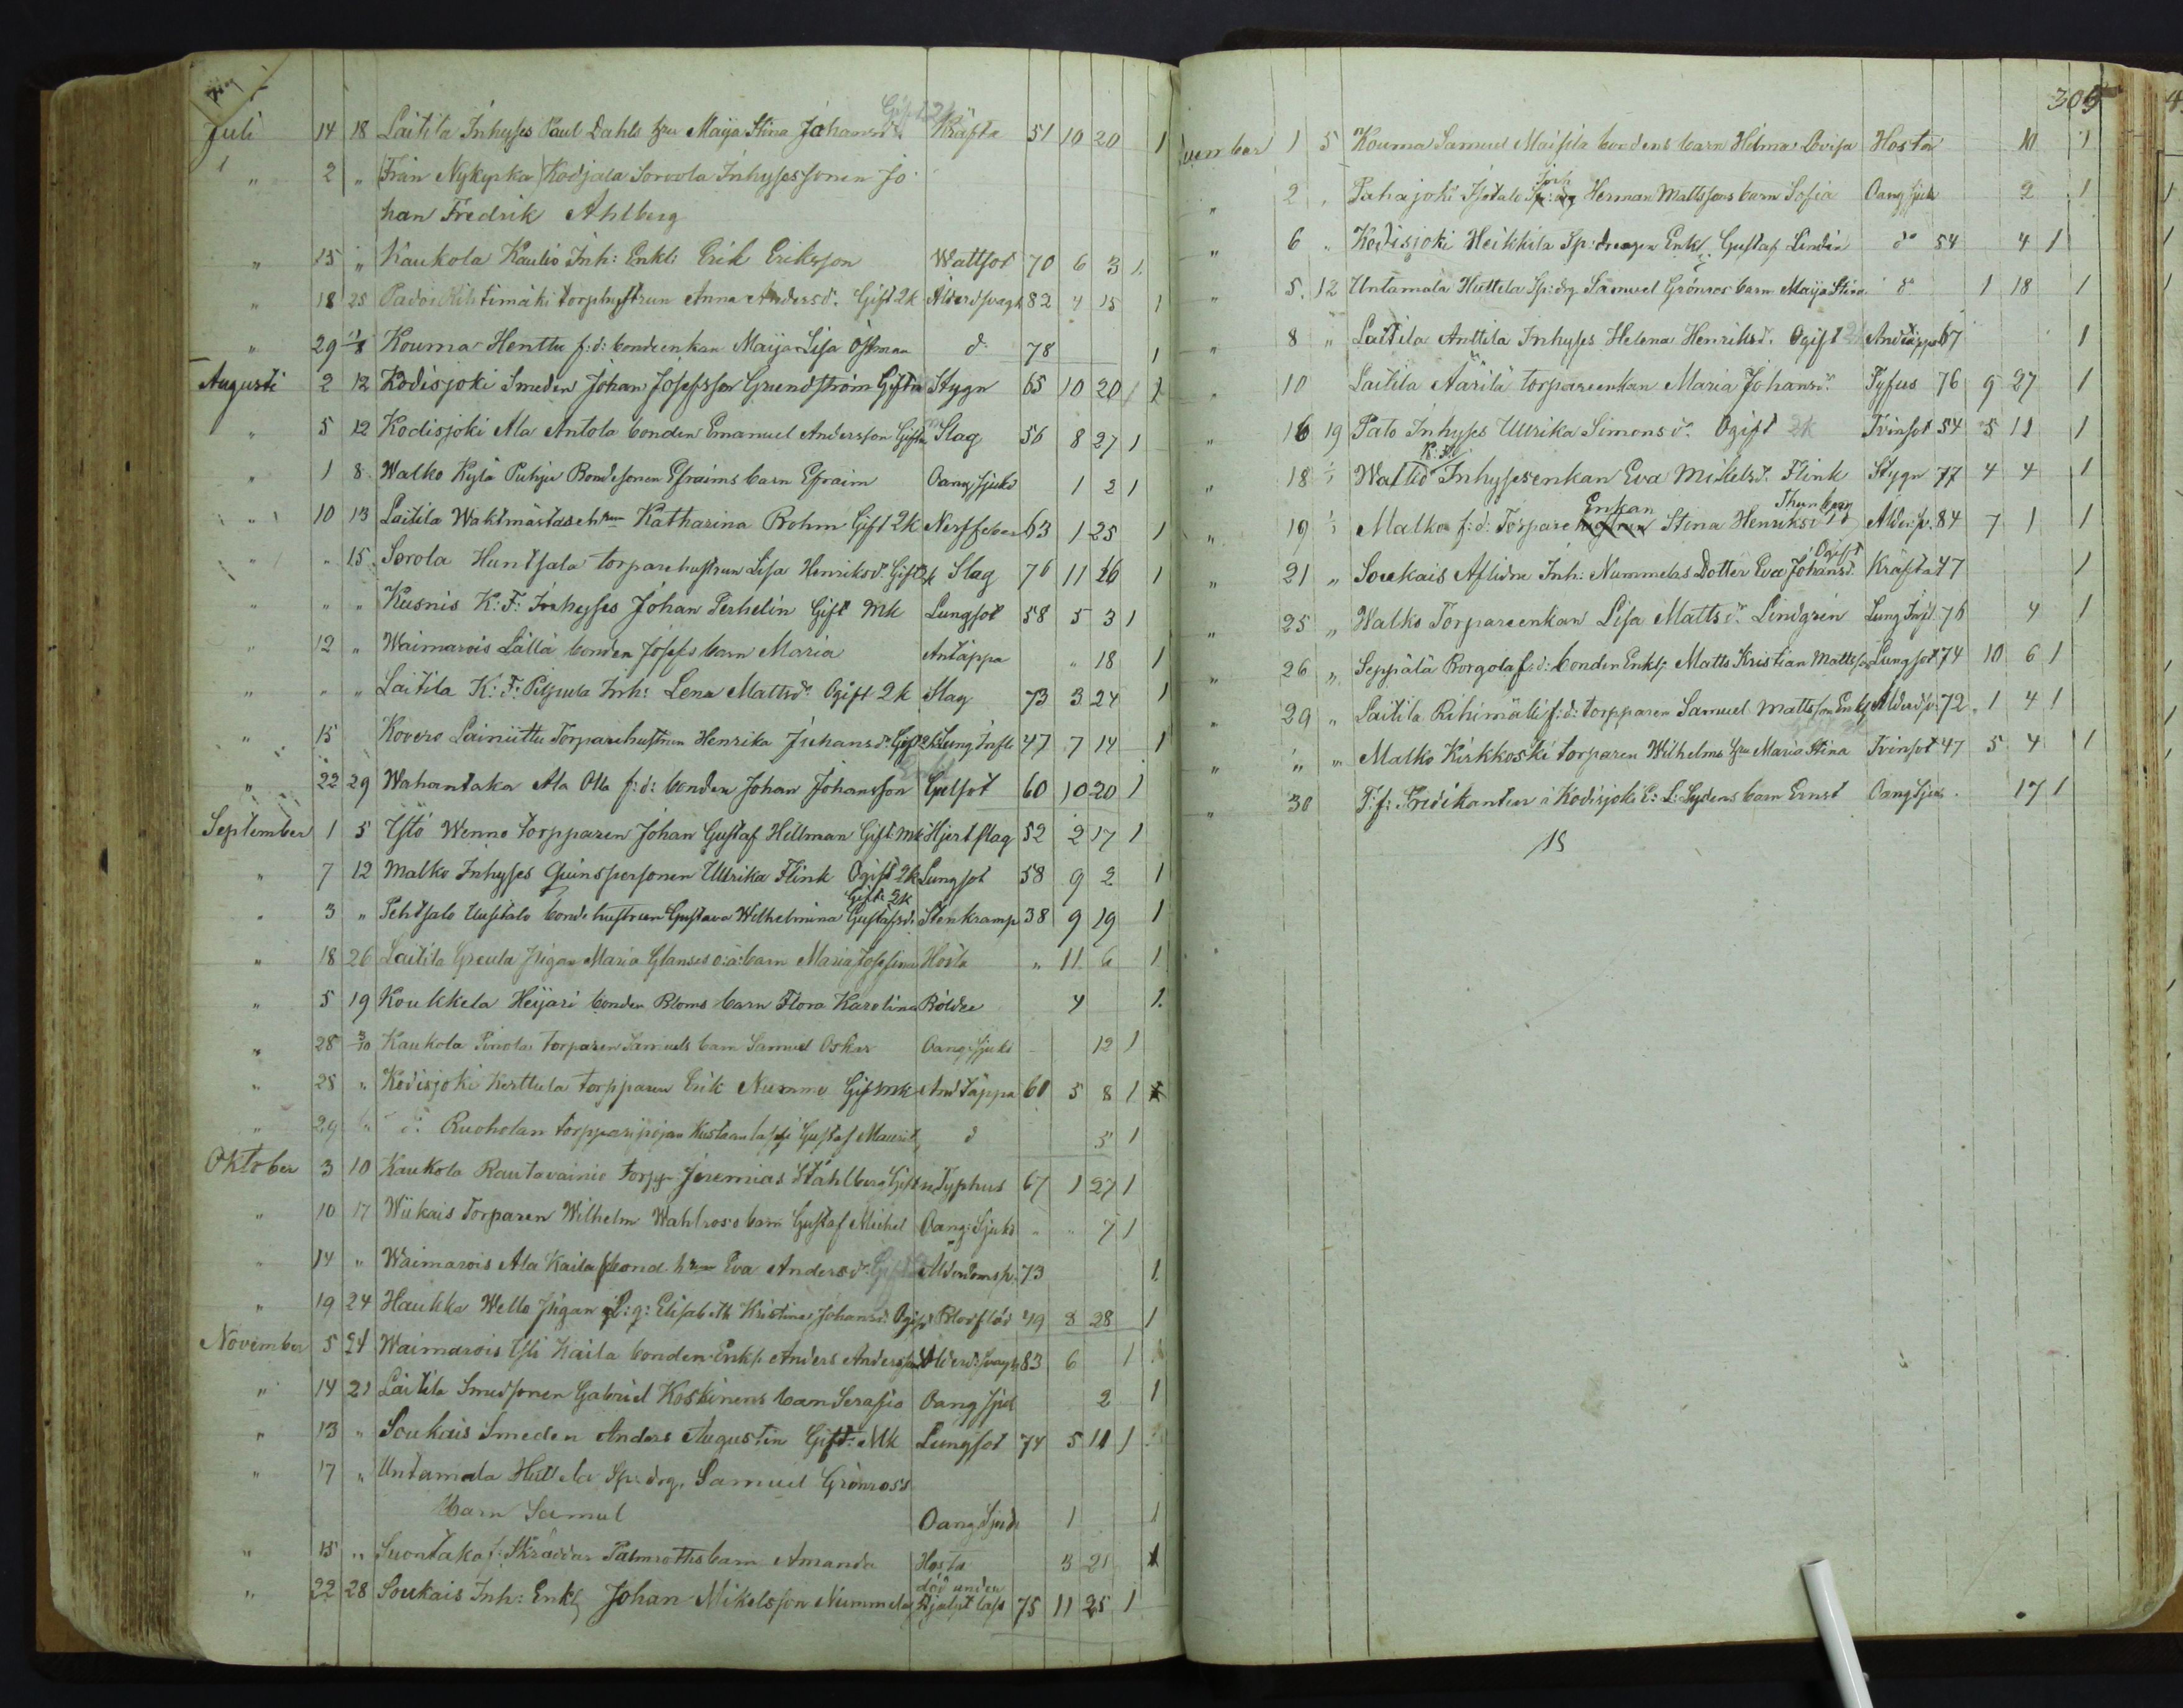 Juli 14 18 Laitila Inhyses Paul Dahls hru Maija Stina Johansdr. Gift 2k Kräfta 51 10 20 1
" 2 " Från Nykyrka Kodjala Sorvola Inhysessonen Jo
han Fredrik Ahlberg
" 15 " Kaukola Kaulio Inh: Enkl: Erik Eriksson Wattsot 70 6 3 1
" 18 25 Padoi torphustrun Anna Andersdr. Gift 2k Ålderdsvagh 82 4 15 1
" 29 1/8 Kouma Henttu f:d: bondeenkan Maija Lisa Östman d:o 78 1
Augusti 2 12 Kodisjoki Smeden Johan Josefsson Grundström Gift Stygn 65 10 20 1
" 5 12 Kodisjoki Ala Antola bonden Emanuel Andersson Gift Slag 56 8 27 1
" 1 8 Walko Kylä Puhju Bondesonen Efraims barn Efraim Oang Sjukd 1 2 1
" 10 13 Laitila Waktmästarehrun Katharina Bohm Gift 2k Nerffeber 63 1 25 1
" " 15 Sorola Huntsala torparehustrun Lisa Henriksdr. Gift 2k Slag 76 11 26 1
" " " Kusnis K: T: Inhyses Johan Perhelin Gift Mk Lungsot 58 5 3 1
" 12 " Waimarois Lällä bonden Josefs barn Maria Antäppa " 18 1
" " " Laitila K: T: Inh: Lena Mattsdr. Ogift 2k Slag 73 3 24 1
" 15 Kovero Lainiittu Torparehustrun Henrika Juhansdr. Gift 2k Lung Infl 47 7 14 1
" 22 29 Wahantaka Ala Olla f:d: bonden Johan Johansson Enkl Gulsot 60 10 20 1
September 1 5 Ytö Wenno torpparen Johan Gustaf Hellman Gift Mk Hjertslag 52 2 17 1
" 7 12 Malko Inhyses Quinspersonen Ulrika Flink Ogift 2k Lungsot 58 9 2 1
" 3 " Pehtsalo Uusitalo bondehustrun Gustava Wilhelmina Gustafsdr. Gift 2k Stenkramp 38 9 19 1
" 18 26 Laitila Greula Pigan Maria Glanses o:ä: barn Maria Josefina Hosta " 11 6 1
" 5 19 Koukkela Heijari bonden Bloms barn Flora Karolina Bölder 4 1
" 28 3/10 Kaukola Torparen Samuels barn Samuel Oskar Oang Sjukd 12 1
" 28 " Kodisjoki Kerttula torpparen Erik Nummo Gift Mk And Täppa 60 5 8 1
" 29 " d:o Ruoholan torpparipojan Kustaan lapsi Gustaf Maurits d:o 5 1
Oktober 3 10 Kaukola Rautavainio torpp Jeremias Ståhlberg Gift Typhus 67 1 27 1
" 10 17 Wiikais Torparen Wilhelm Wahlross barn Gustaf Mickel Oang: Sjukd " " 7 1
" 14 " Waimarois Ala Kaila fbond. hrun Eva Andersdr. Gift Ålderdomsk. 73 1
" 19 24 Haukka Wello Pigan Elisabeth Kristina Johansdr. Ogift Blodflöd 49 8 28 1
November 5 24 Waimarois Yli Kaila bonden Enkl. Anders Andersson Ålderdsvagh 83 6 1
" 14 21 Laitila Smedsonen Gabriel Koskinens barn Serafia Oang Sjuk 2 1
" 13 " Soukais Smeden Anders Augustin Gift Mk Lungsot 74 5 11 1
" 17 " Untamala Huttela Sp: drg. Samuel Grönross
barn Samuel Oang Sjuk 1 1
" 15 " Suontaka f: Skräddar Palmroths barn Amanda Hosta 3 21 1
" 22 28 Soukais Inh: Enkl Johan Mikelsson Nummelin död under Hjelpt lass 75 11 25 1
305
vember 1 5 Kouma Samuel Maisila bondens barn Hilma Lovisa Hosta 10 1
" 2 " Pahajoki Isotalo Torp Herman Mattssons barn Sofia Oang Sjuk 2 1
" 6 " Kodisjoki Heikkilä Sp: drengen Enkl. Gustaf Lindin d:o 54 4 1
" 5 12 Untamala Huttela Sp: drg Samuel Grönros barn Maija Stina d:o 1 18 1
" 8 " Laitila Anttila Inhyses Helena Henriksdr. Ogift 2k Andtäppa 67 1
" 10 Laitila Äärilä torpareenkan Maria Johansdr. Tyfus 76 9 27 1
" 16 19 Pato Inhyses Ulrika Simonsdr. Ogift 2k Tvinsot 54 5 11 1
" 18 " Walko Inhysesenkan Eva Mikelsdr. Flink Stygn 77 4 4 1
" 19 " Malko f:d: Torpare Enkan Stina Henriksdr Thunberg Ålder:sv: 84 7 1 1
" 21 " Soukais Aflidne Inh: Nummelas Dotter Eva Johansdr. Ogift Kräfta 47 1
" 25 " Walko Torpareenkan Lisa Mattsdr. Lindgrén Lung Infl. 76 4 1
" 26 " Seppälä Borgola f:d: bonden Enkl: Matts Kristian Mattsson Lungsot 74 10 6 1
" 29 " Laitila Riihimäki f:d: torpparen Samuel Mattsson Enkl Ålderdsv: 72 1 4 1
" " " Malko Kirkkoski torparen Wilhelms hru Maria Stina Tvinsot 47 5 4 1
" 30 T:f: Predikanten i Kodisjoki E: L: Lydens barn Ernst Oang Sjuk 17 1
15